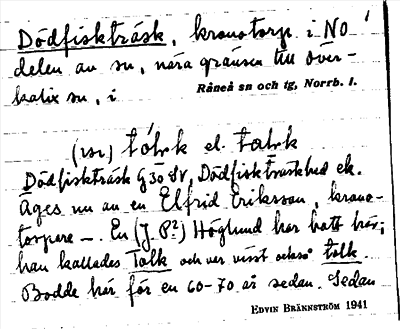 Dödfiskträsk, kronotorp i NO
delen av sn, nära gränsen till över-
kalix sn, i
Råneå sn och tg, Norrb. l.
(nr) tólrk el. talrk
Dödfiskträsk G 30 SV, Dödfiskträskhed ek.
Äges nu av en Elfrid Eriksson, krono-
torpare –. En (J. P.?) Höglund har haft här;
han kallades Tolk och var visst också tolk.
Bodde här för en 60-70 år sedan. Sedan
EDVIN BRÄNNSTRÖM 1941